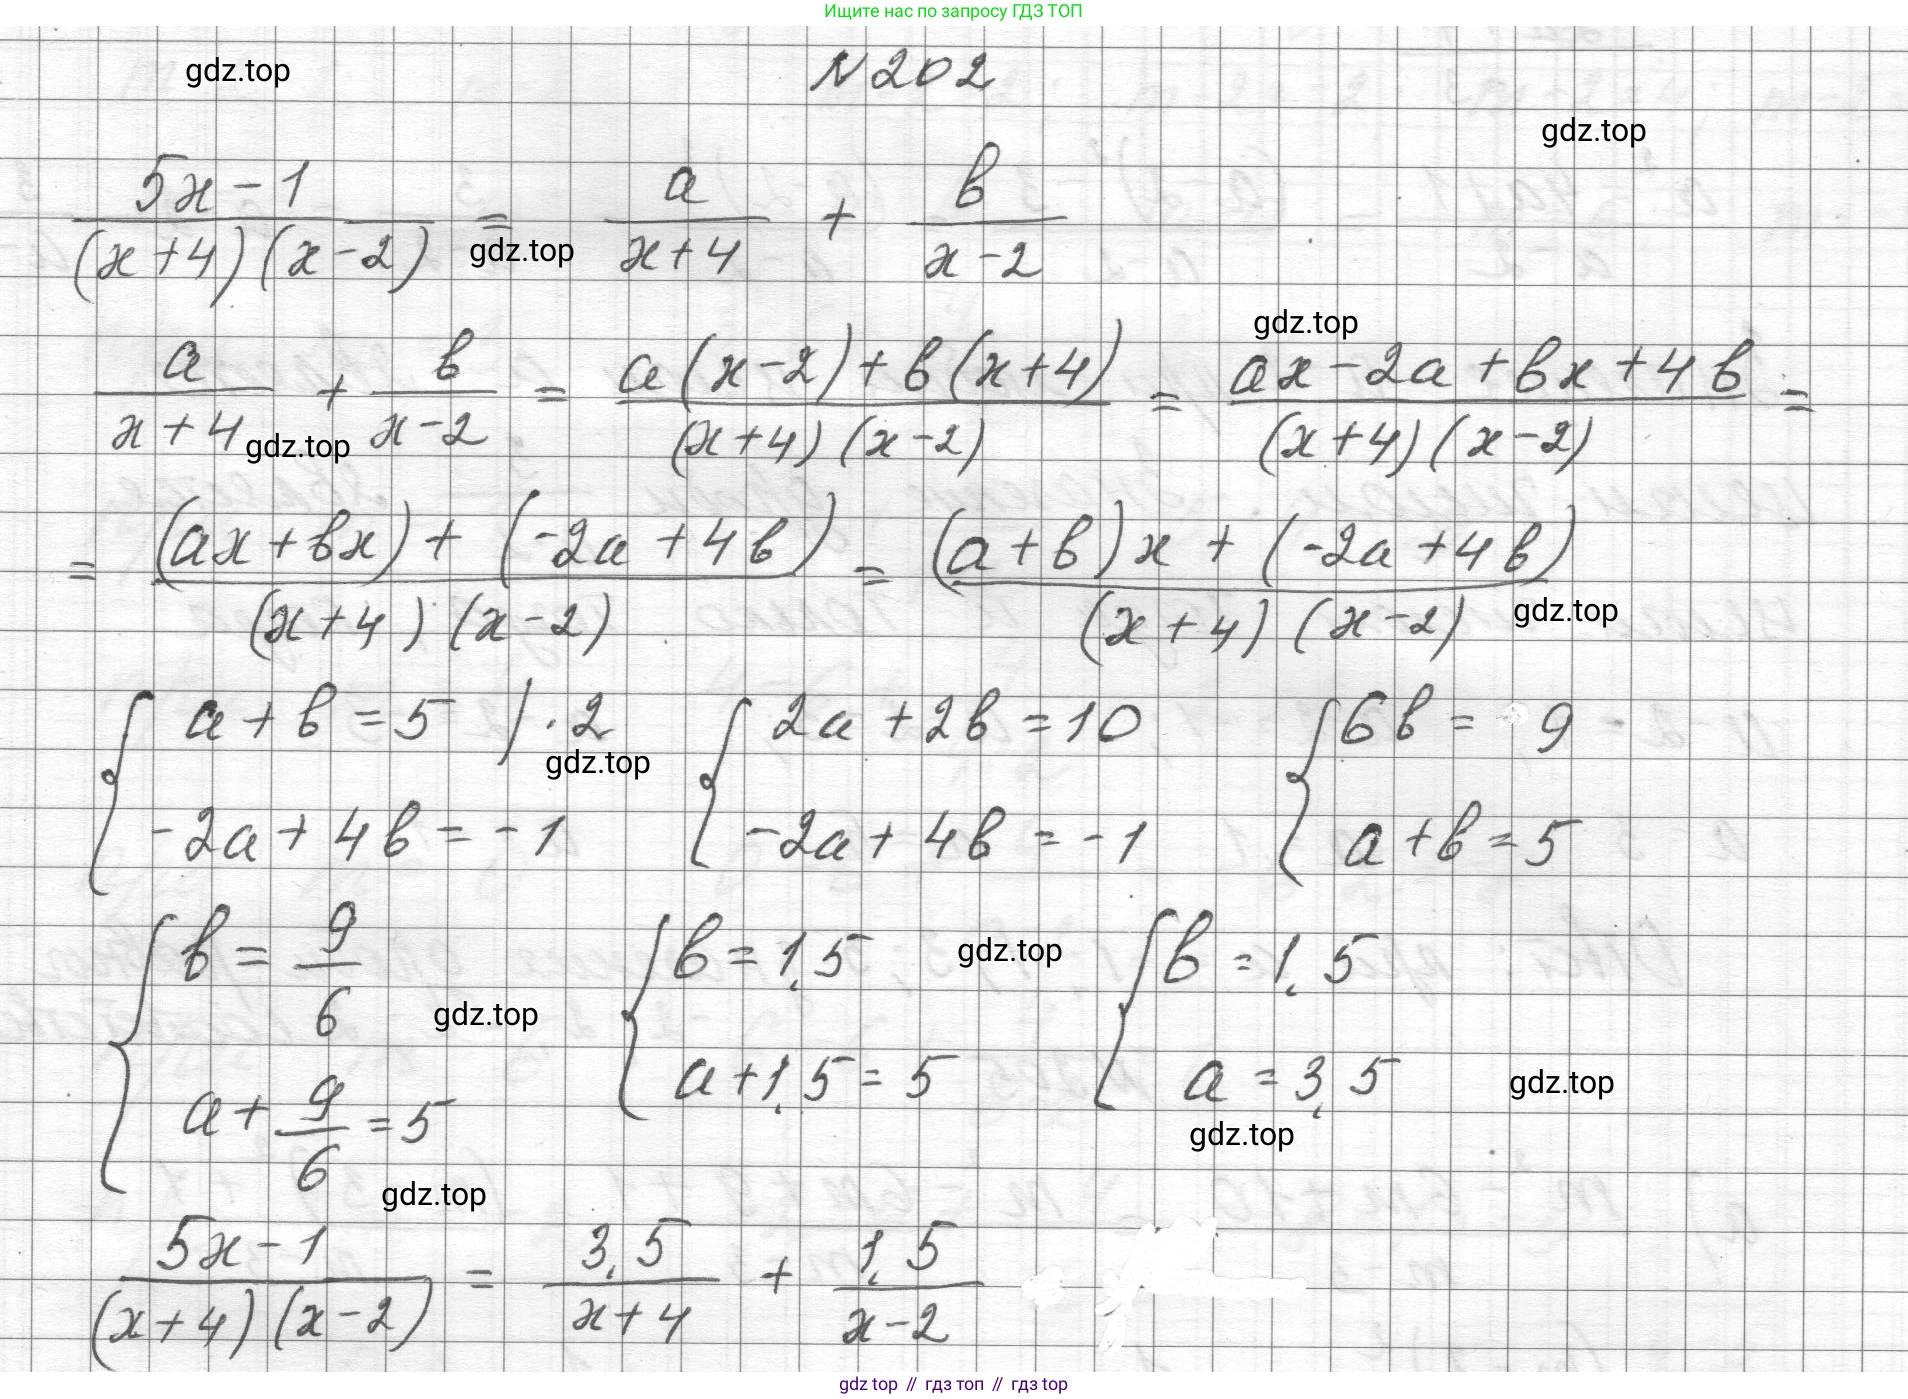 Ищите нас по запросу ГДЗ ТОП
N 202
gdz.top
gdz.top
(5x-1)/((x+4)(x-2)) = a/(x+4) + b/(x-2)
gdz.top
gdz.top
a/(x+4) + b/(x-2) = (a(x-2)+b(x+4))/((x+4)(x-2)) = (ax-2a+bx+4b)/((x+4)(x-2)) =
gdz.top
= ((ax+bx)+(-2a+4b))/((x+4)(x-2)) = ((a+b)x+(-2a+4b))/((x+4)(x-2))
gdz.top
{ a+b=5 |·2 { 2a+2b=10 { 6b= 9
gdz.top
-2a+4b=-1 -2a+4b=-1 a+b=5
{ b=9/6 { b=1,5 { b=1,5
gdz.top
gdz.top
a+9/6=5 a+1,5=5 a=3,5
gdz.top
gdz.top
gdz.top
(5x-1)/((x+4)(x-2)) = 3,5/(x+4) + 1,5/(x-2)
gdz top // гдз топ // гдз top